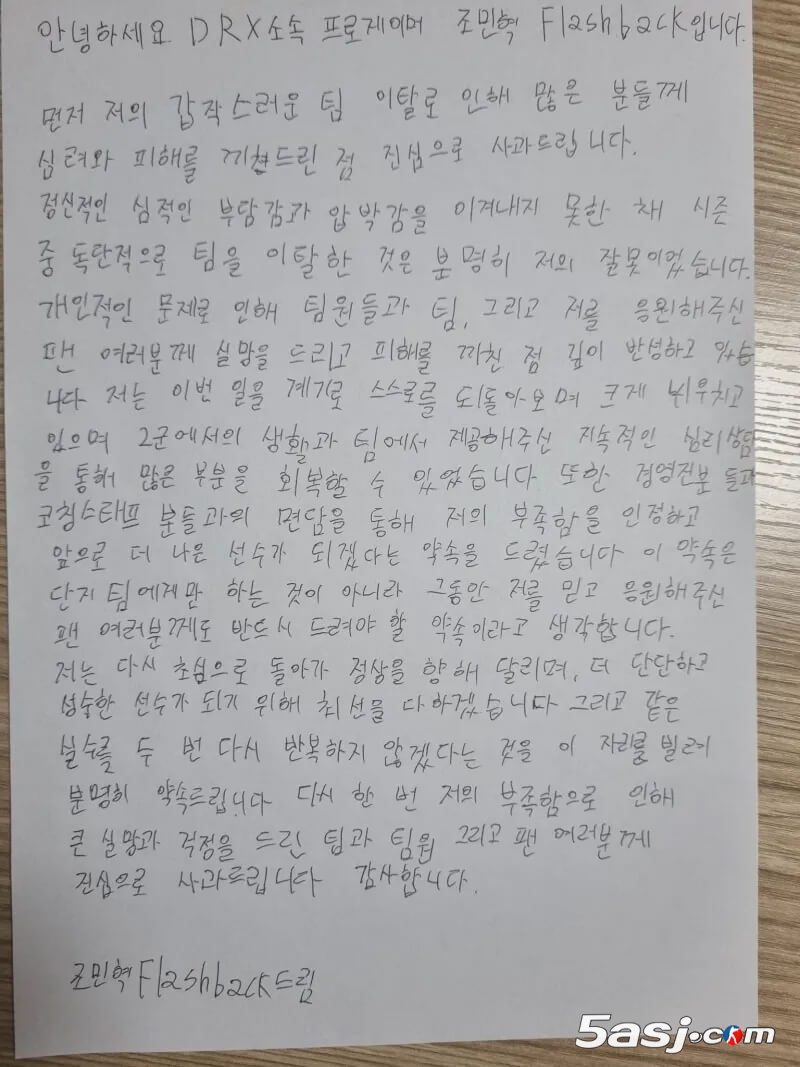 안녕하세요 DRX소속 프로게이머 조민혁 Flashback입니다.
먼저 저의 갑작스러운 팀 이탈로 인해 많은 분들께
심려와 피해를 끼쳐드린 점 진심으로 사과드립니다.
정신적인 심적인 부담감과 압박감을 이겨내지 못한 채 시즌
중 독단적으로 팀을 이탈한 것은 분명히 저의 잘못이었습니다.
개인적인 문제로 인해 팀원들과 팀, 그리고 저를 응원해주신
팬 여러분께 실망을 드리고 피해를 끼친 점 깊이 반성하고 있습
니다 저는 이번 일을 계기로 스스로를 되돌아보며 크게 뉘우치고
있으며 2군에서의 생활과 팀에서 제공해주신 지속적인 심리상담
을 통해 많은 부분을 회복할 수 있었습니다 또한 경영진분 들과
코칭스태프 분들과의 면담을 통해 저의 부족함을 인정하고
앞으로 더 나은 선수가 되겠다는 약속을 드렸습니다 이 약속은
단지 팀에게만 하는 것이 아니라 그동안 저를 믿고 응원해주신
팬 여러분께도 반드시 드려야 할 약속이라고 생각합니다.
저는 다시 초심으로 돌아가 정상을 향해 달리며, 더 단단하고
성숙한 선수가 되기 위해 최선을 다하겠습니다 그리고 같은
실수를 두 번 다시 반복하지 않겠다는 것을 이 자리를 빌려
분명히 약속드립니다 다시 한 번 저의 부족함으로 인해
큰 실망과 걱정을 드린 팀과 팀원 그리고 팬 여러분께
진심으로 사과드립니다 감사합니다.
조민혁Flashback드림
5asj.com